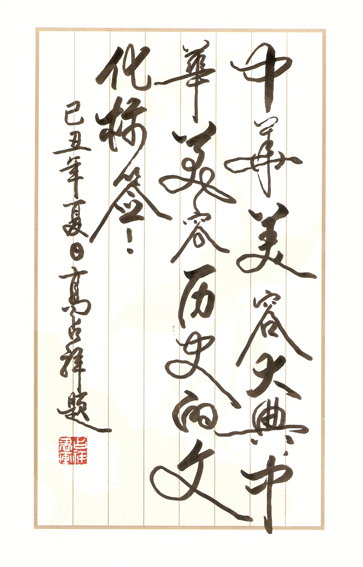 中华美容大典中
華美容历史的文
化标签！
己丑年夏日高占祥题